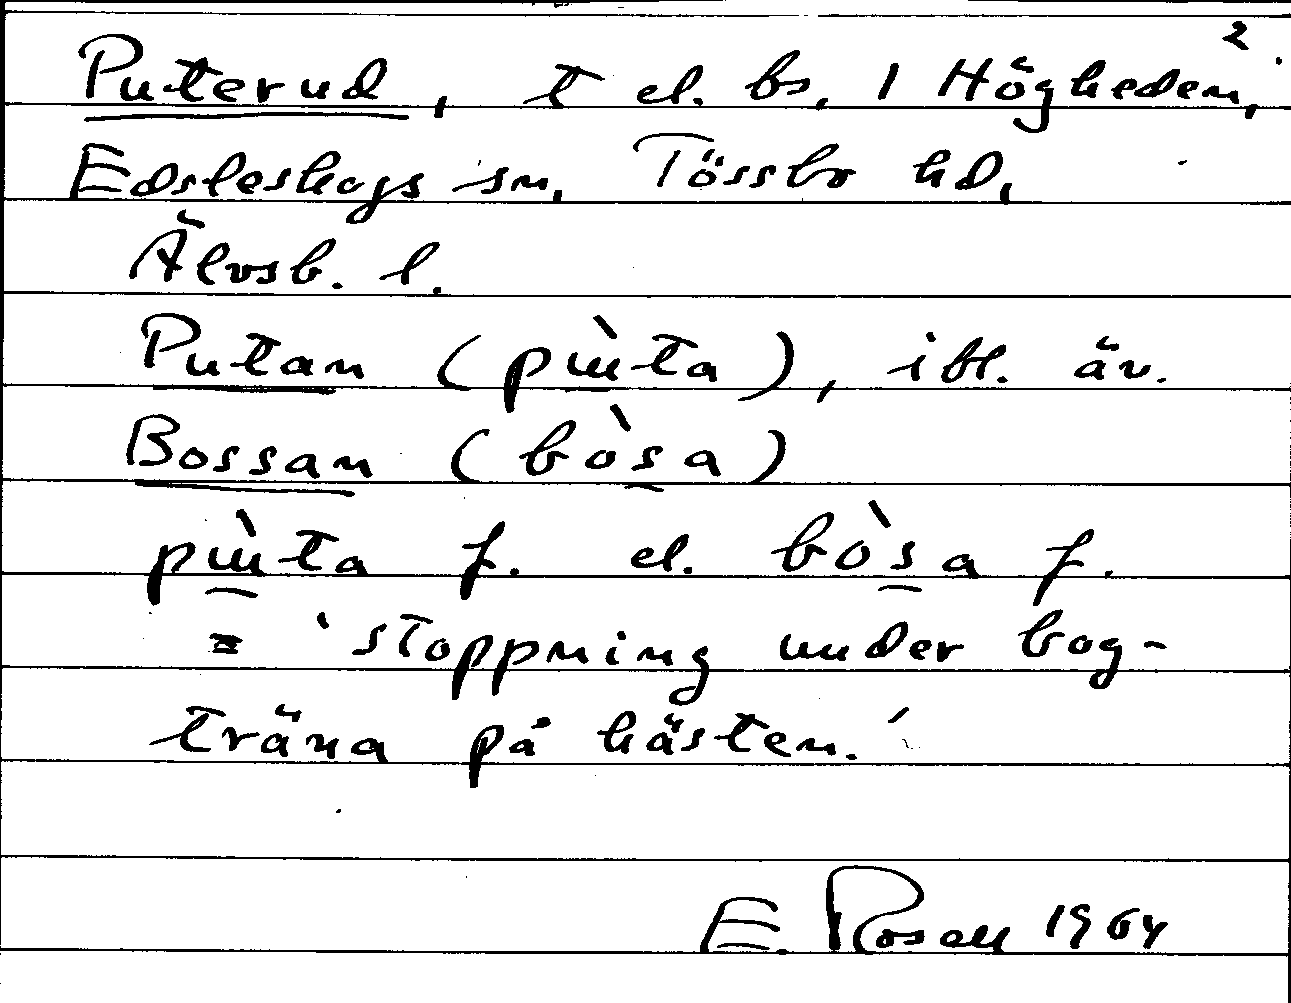 2.
Puterud, t el. bs, 1 Högheden,
Edsleskogs sn, Tössbo hd,
Älvsb. l.
Putan (pùta), ibl. äv.
Bossan (bòsa)
pùta f. el. bòsa f.
= 'stoppning under bog-
träna på hästen.'
E. Rosell 1964